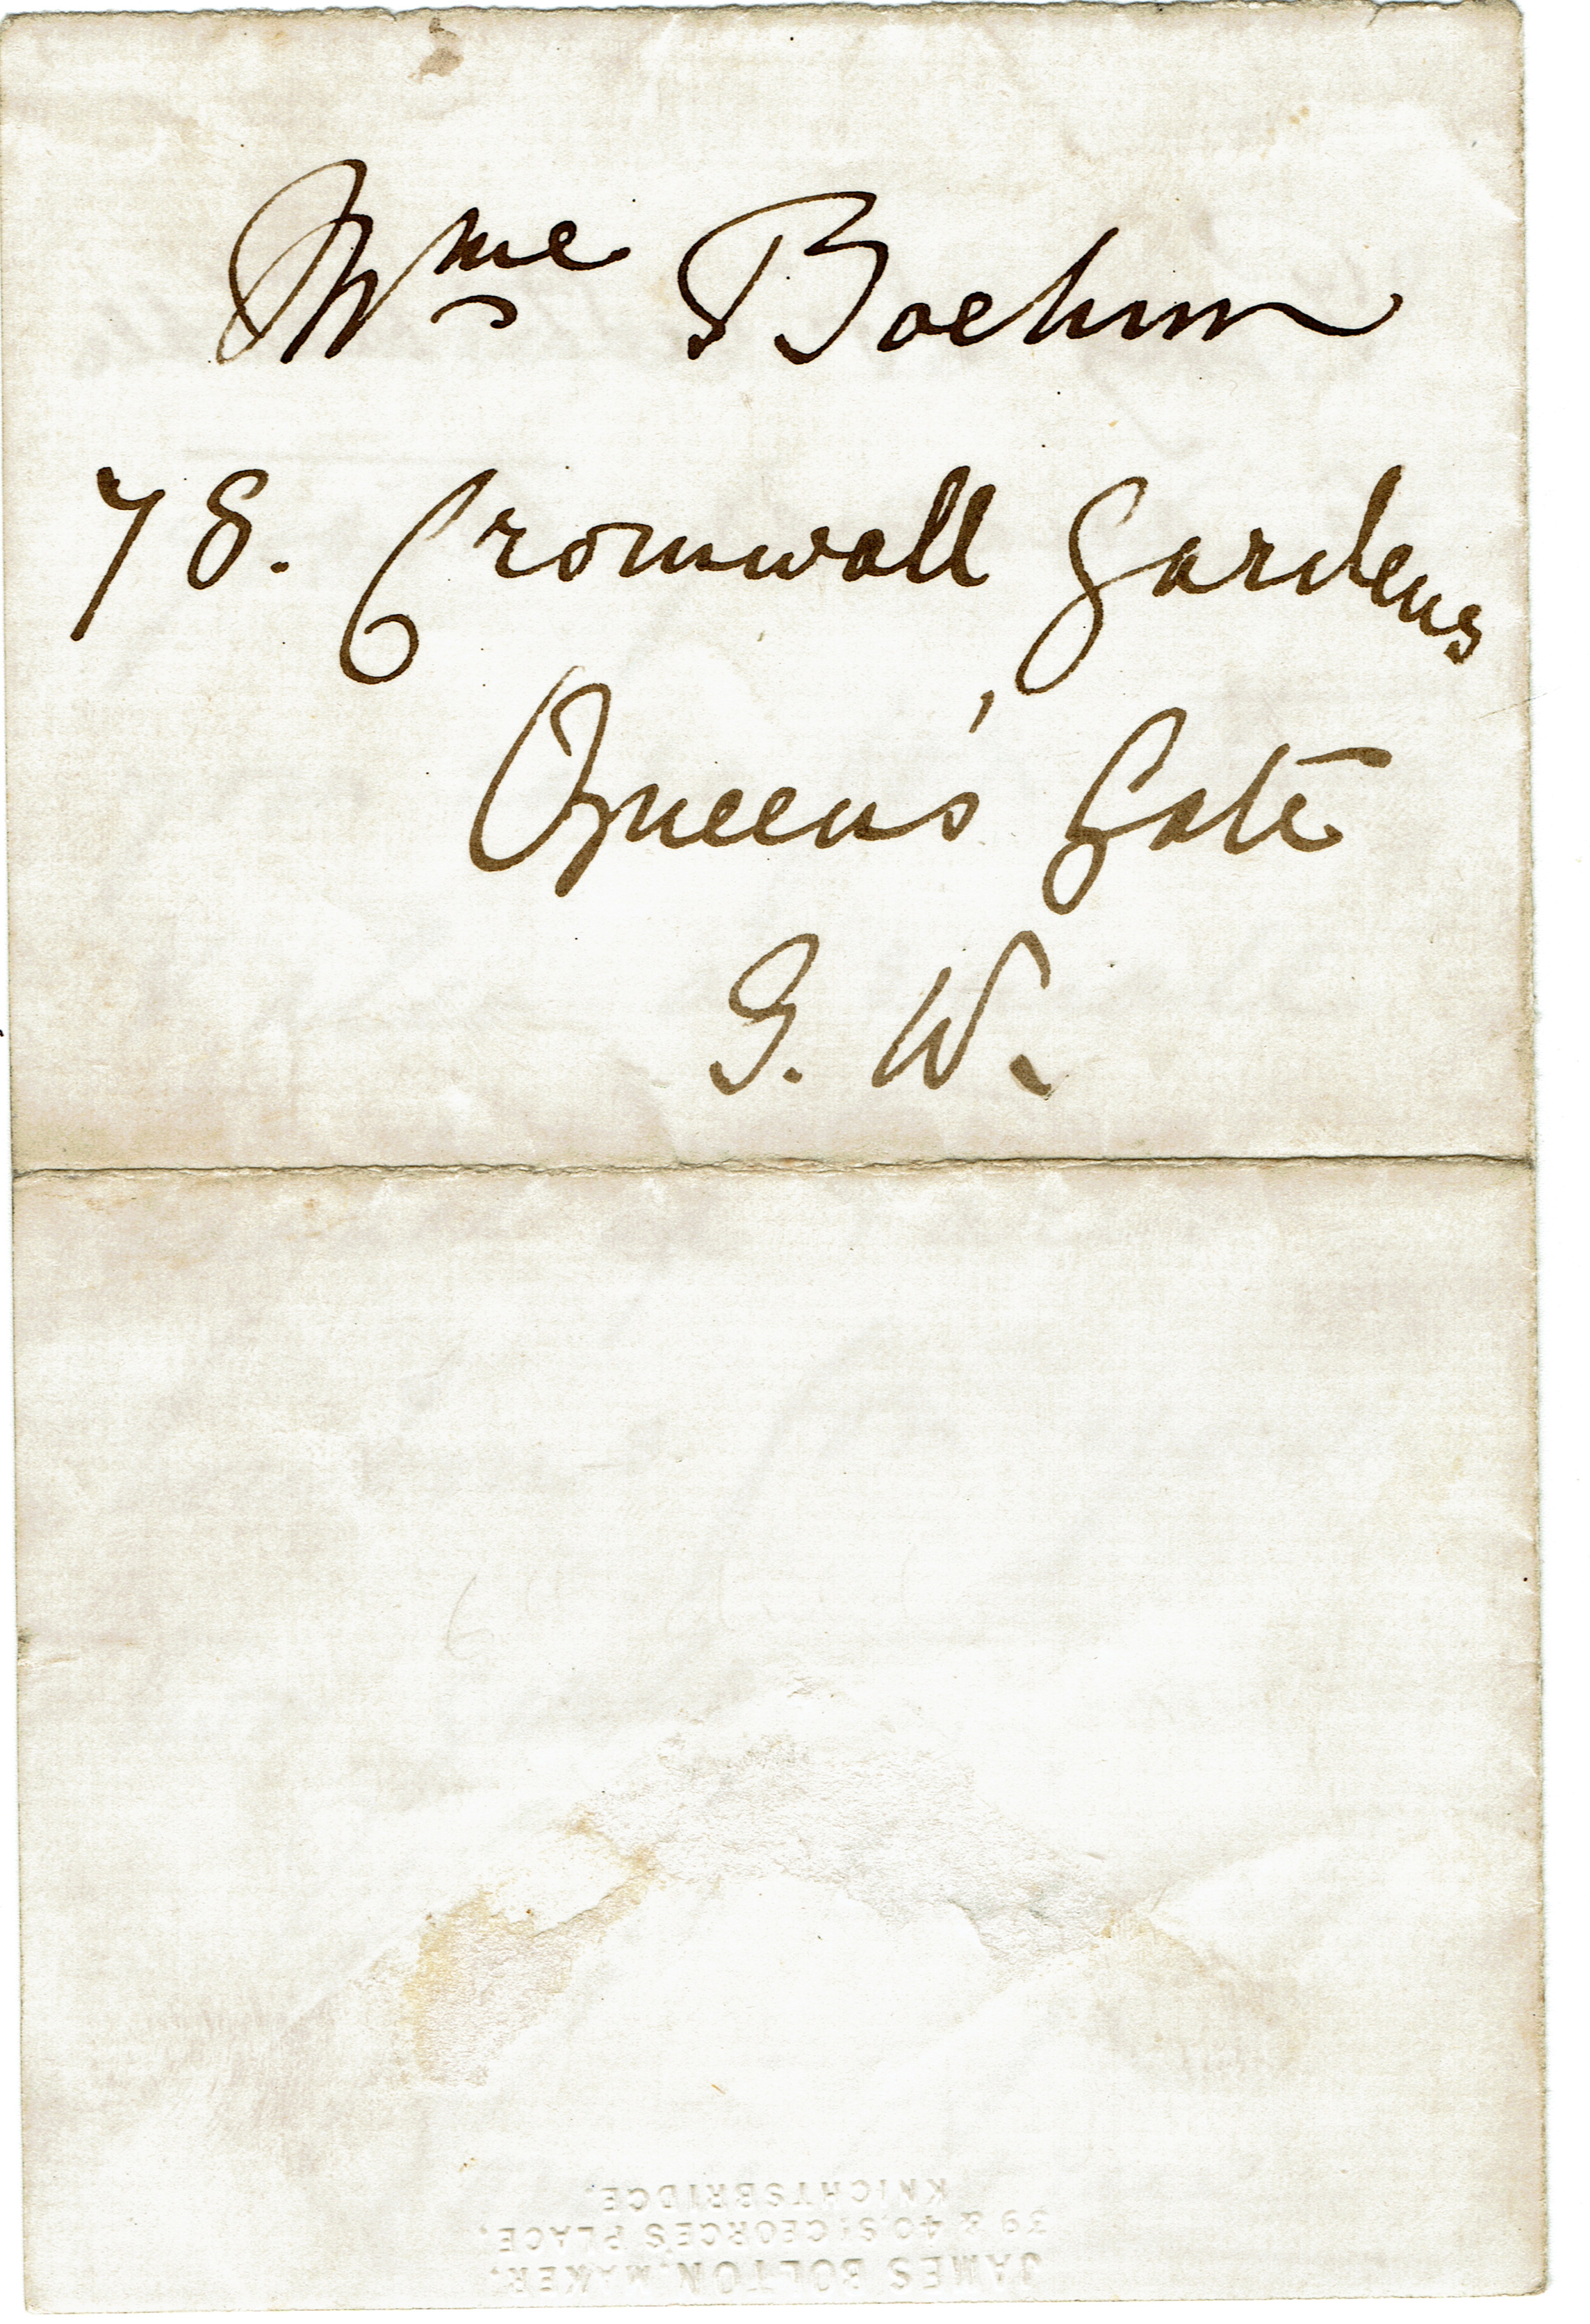 Mme Boehm
78. Cromwall Gardens
Queens' Gate
S. W.
JAMES BOLTON, MAKER.
39 & 40, ST GEORGES PLACE,
KNIGHTSBRIDGE.